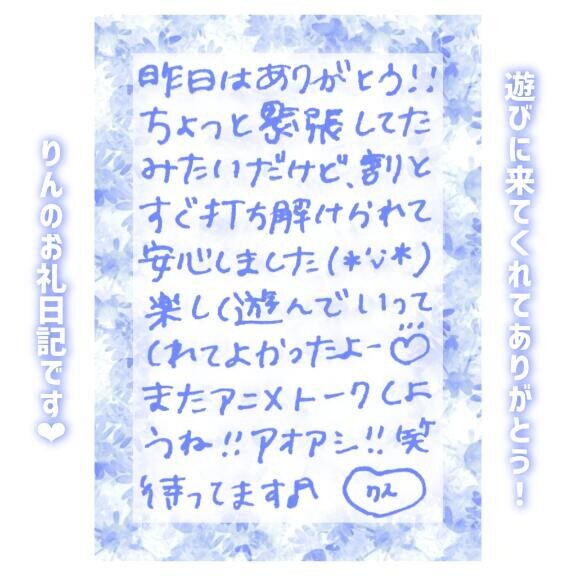 遊びに来てくれてありがとう！
昨日はありがとう!!
ちょっと緊張してた
みたいだけど、割と
すぐ打ち解けられて
安心しました(*'v'*)
楽しく遊んでいって
くれてよかったよー♡
またアニメトークしよ
うね!!アオアシ!!笑
待ってます♬ りん
りんのお礼日記です❤